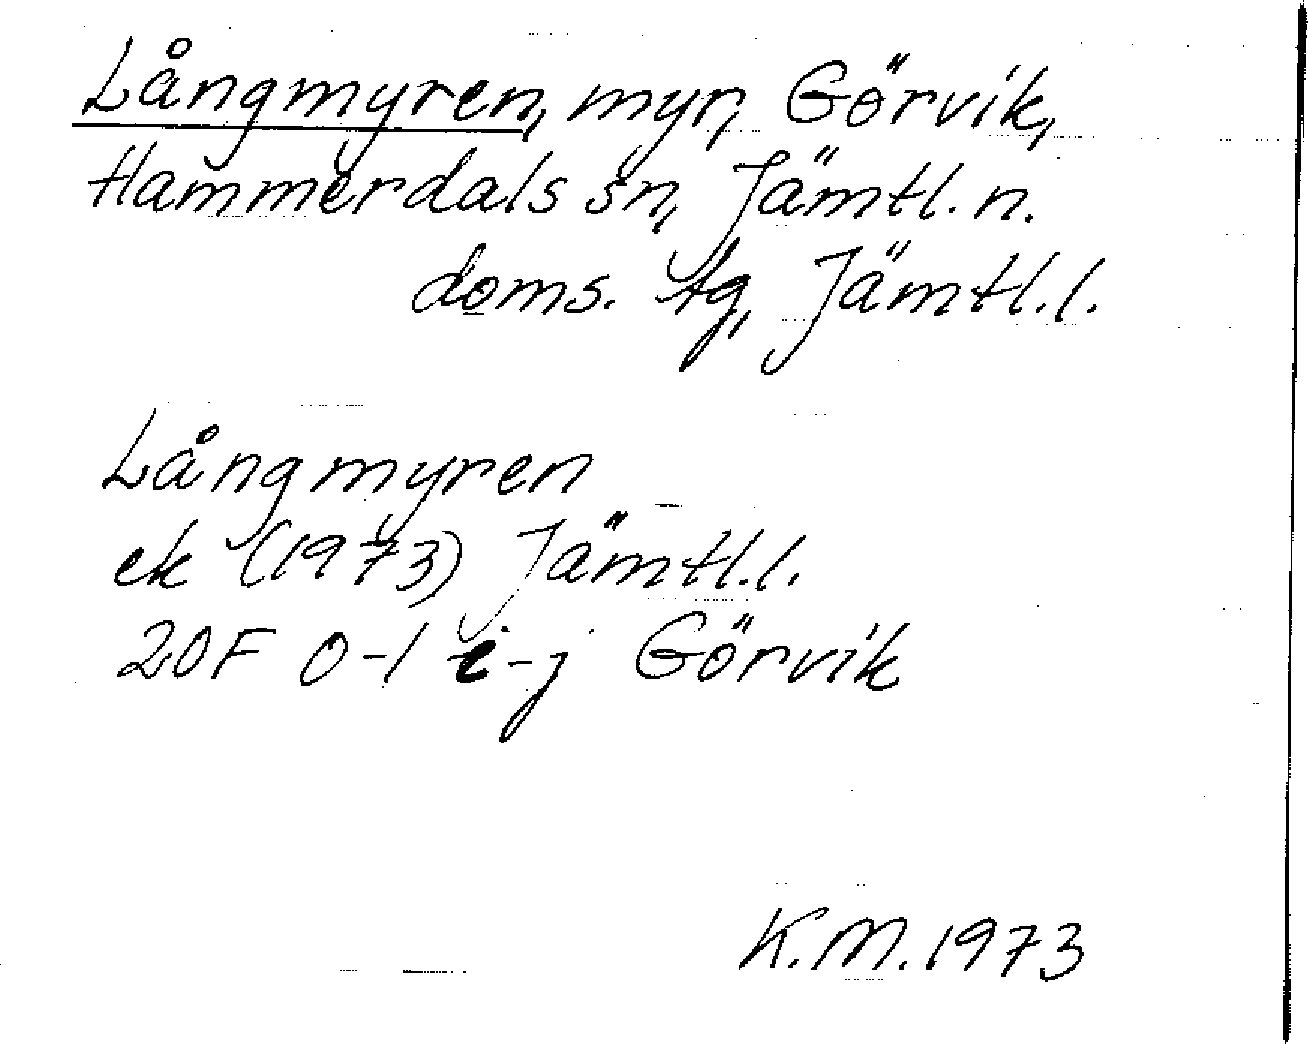 Långmyren, myr, Görvik,
Hammerdals sn, Jämtl. n.
doms. tg, Jämtl. l.
Långmyren
ek (1973) Jämtl. l.
20F 0-1 i-j Görvik
K.M. 1973